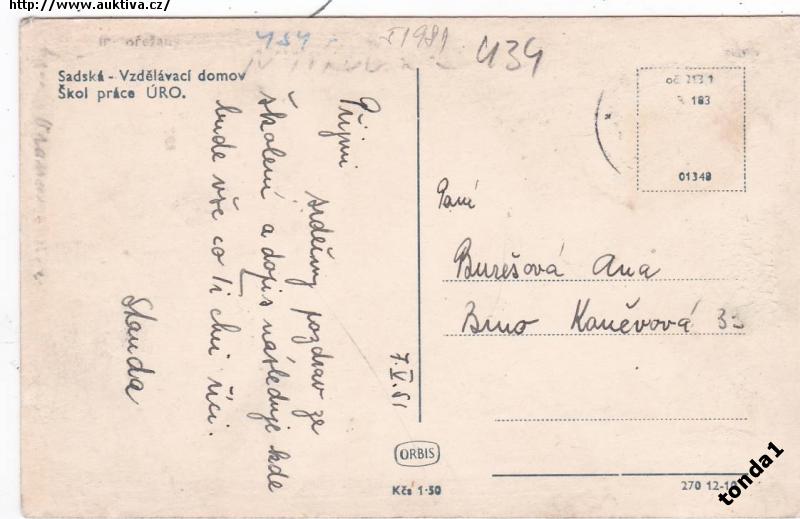 http://www.auktiva.cz/
434
I 1981
434
Sadská - Vzdělávací domov
Škol práce ÚRO.
Přijmi srdečný pozdrav ze
školení a dopis následuje kde
bude vše co Ti chci říci.
Standa
7.V.51
01348
Paní
Burešová Ana
Brno Kaněvová 33
ORBIS
Kčs 1·50
270 12-10
tonda1